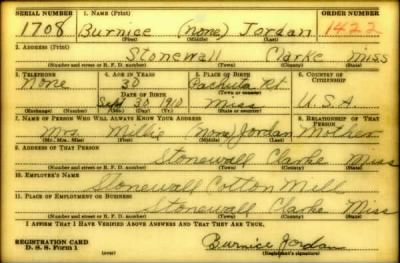 SERIAL NUMBER 1. NAME (Print) ORDER NUMBER
1708 Burnice (none) Jordan 1422
(First) (Middle) (Last)
2. ADDRESS (Print)
Stonewall Clarke Miss
(Number and street or R. F. D. number) (Town) (County) (State)
3. TELEPHONE 4. AGE IN YEARS 5. PLACE OF BIRTH 6. COUNTRY OF CITIZENSHIP
None 30 Pachuta Rt.
DATE OF BIRTH (Town or county)
Sept 30 1910 Miss U.S.A.
(Exchange) (Number) (Mo.) (Day) (Yr.) (State or country)
7. NAME OF PERSON WHO WILL ALWAYS KNOW YOUR ADDRESS 8. RELATIONSHIP OF THAT PERSON
Mrs. Millie (None) Jordan Mother
(Mr., Mrs., Miss) (First) (Middle) (Last)
9. ADDRESS OF THAT PERSON
Stonewall Clarke Miss
(Number and street or R. F. D. number) (Town) (County) (State)
10. EMPLOYER'S NAME
Stonewall Cotton Mill
11. PLACE OF EMPLOYMENT OR BUSINESS
Stonewall Clarke Miss
(Number and street or R. F. D. number) (Town) (County) (State)
I AFFIRM THAT I HAVE VERIFIED ABOVE ANSWERS AND THAT THEY ARE TRUE.
REGISTRATION CARD Burnice Jordan
D. S. S. Form 1 (Registrant's signature)